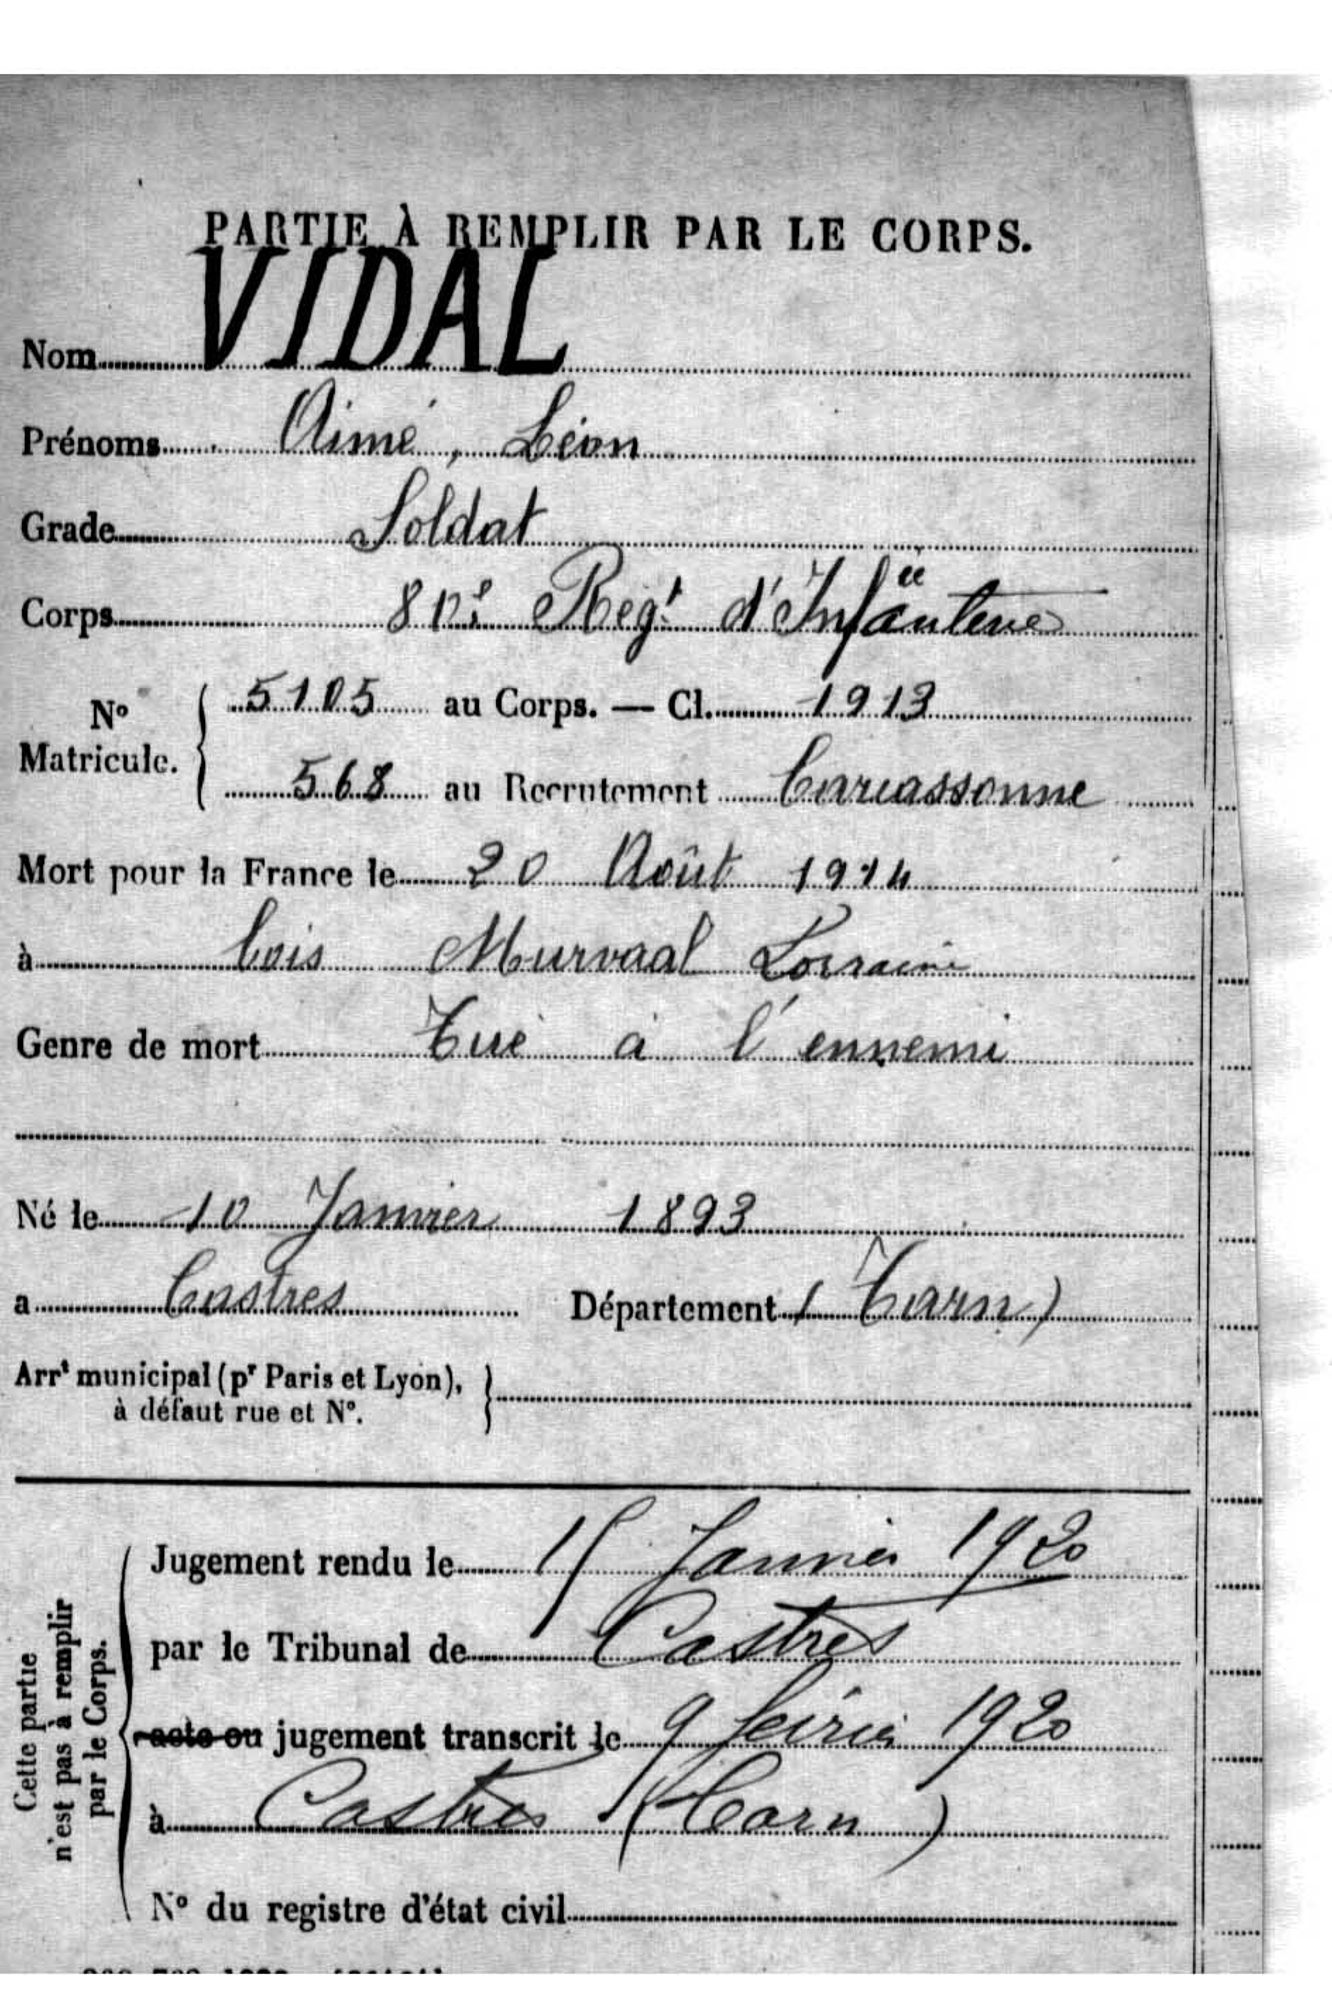 PARTIE À REMPLIR PAR LE CORPS.
Nom VIDAL
Prénoms Aimé, Léon
Grade Soldat
Corps 80e Regt d'Infanterie
N° Matricule. 5105 au Corps. — Cl. 1913
568 au Recrutement Carcassonne
Mort pour la France le 20 Août 1914
à bois Murvaal Lorraine
Genre de mort Tué à l'ennemi
Né le 10 Janvier 1893
a Castres Département (Tarn)
Arrt municipal (pr Paris et Lyon),
à défaut rue et N°.
Cette partie
n'est pas à remplir
par le Corps.
Jugement rendu le 15 Janvier 1920
par le Tribunal de Castres
acte ou jugement transcrit le 9 février 1920
à Castres (Tarn)
N° du registre d'état civil